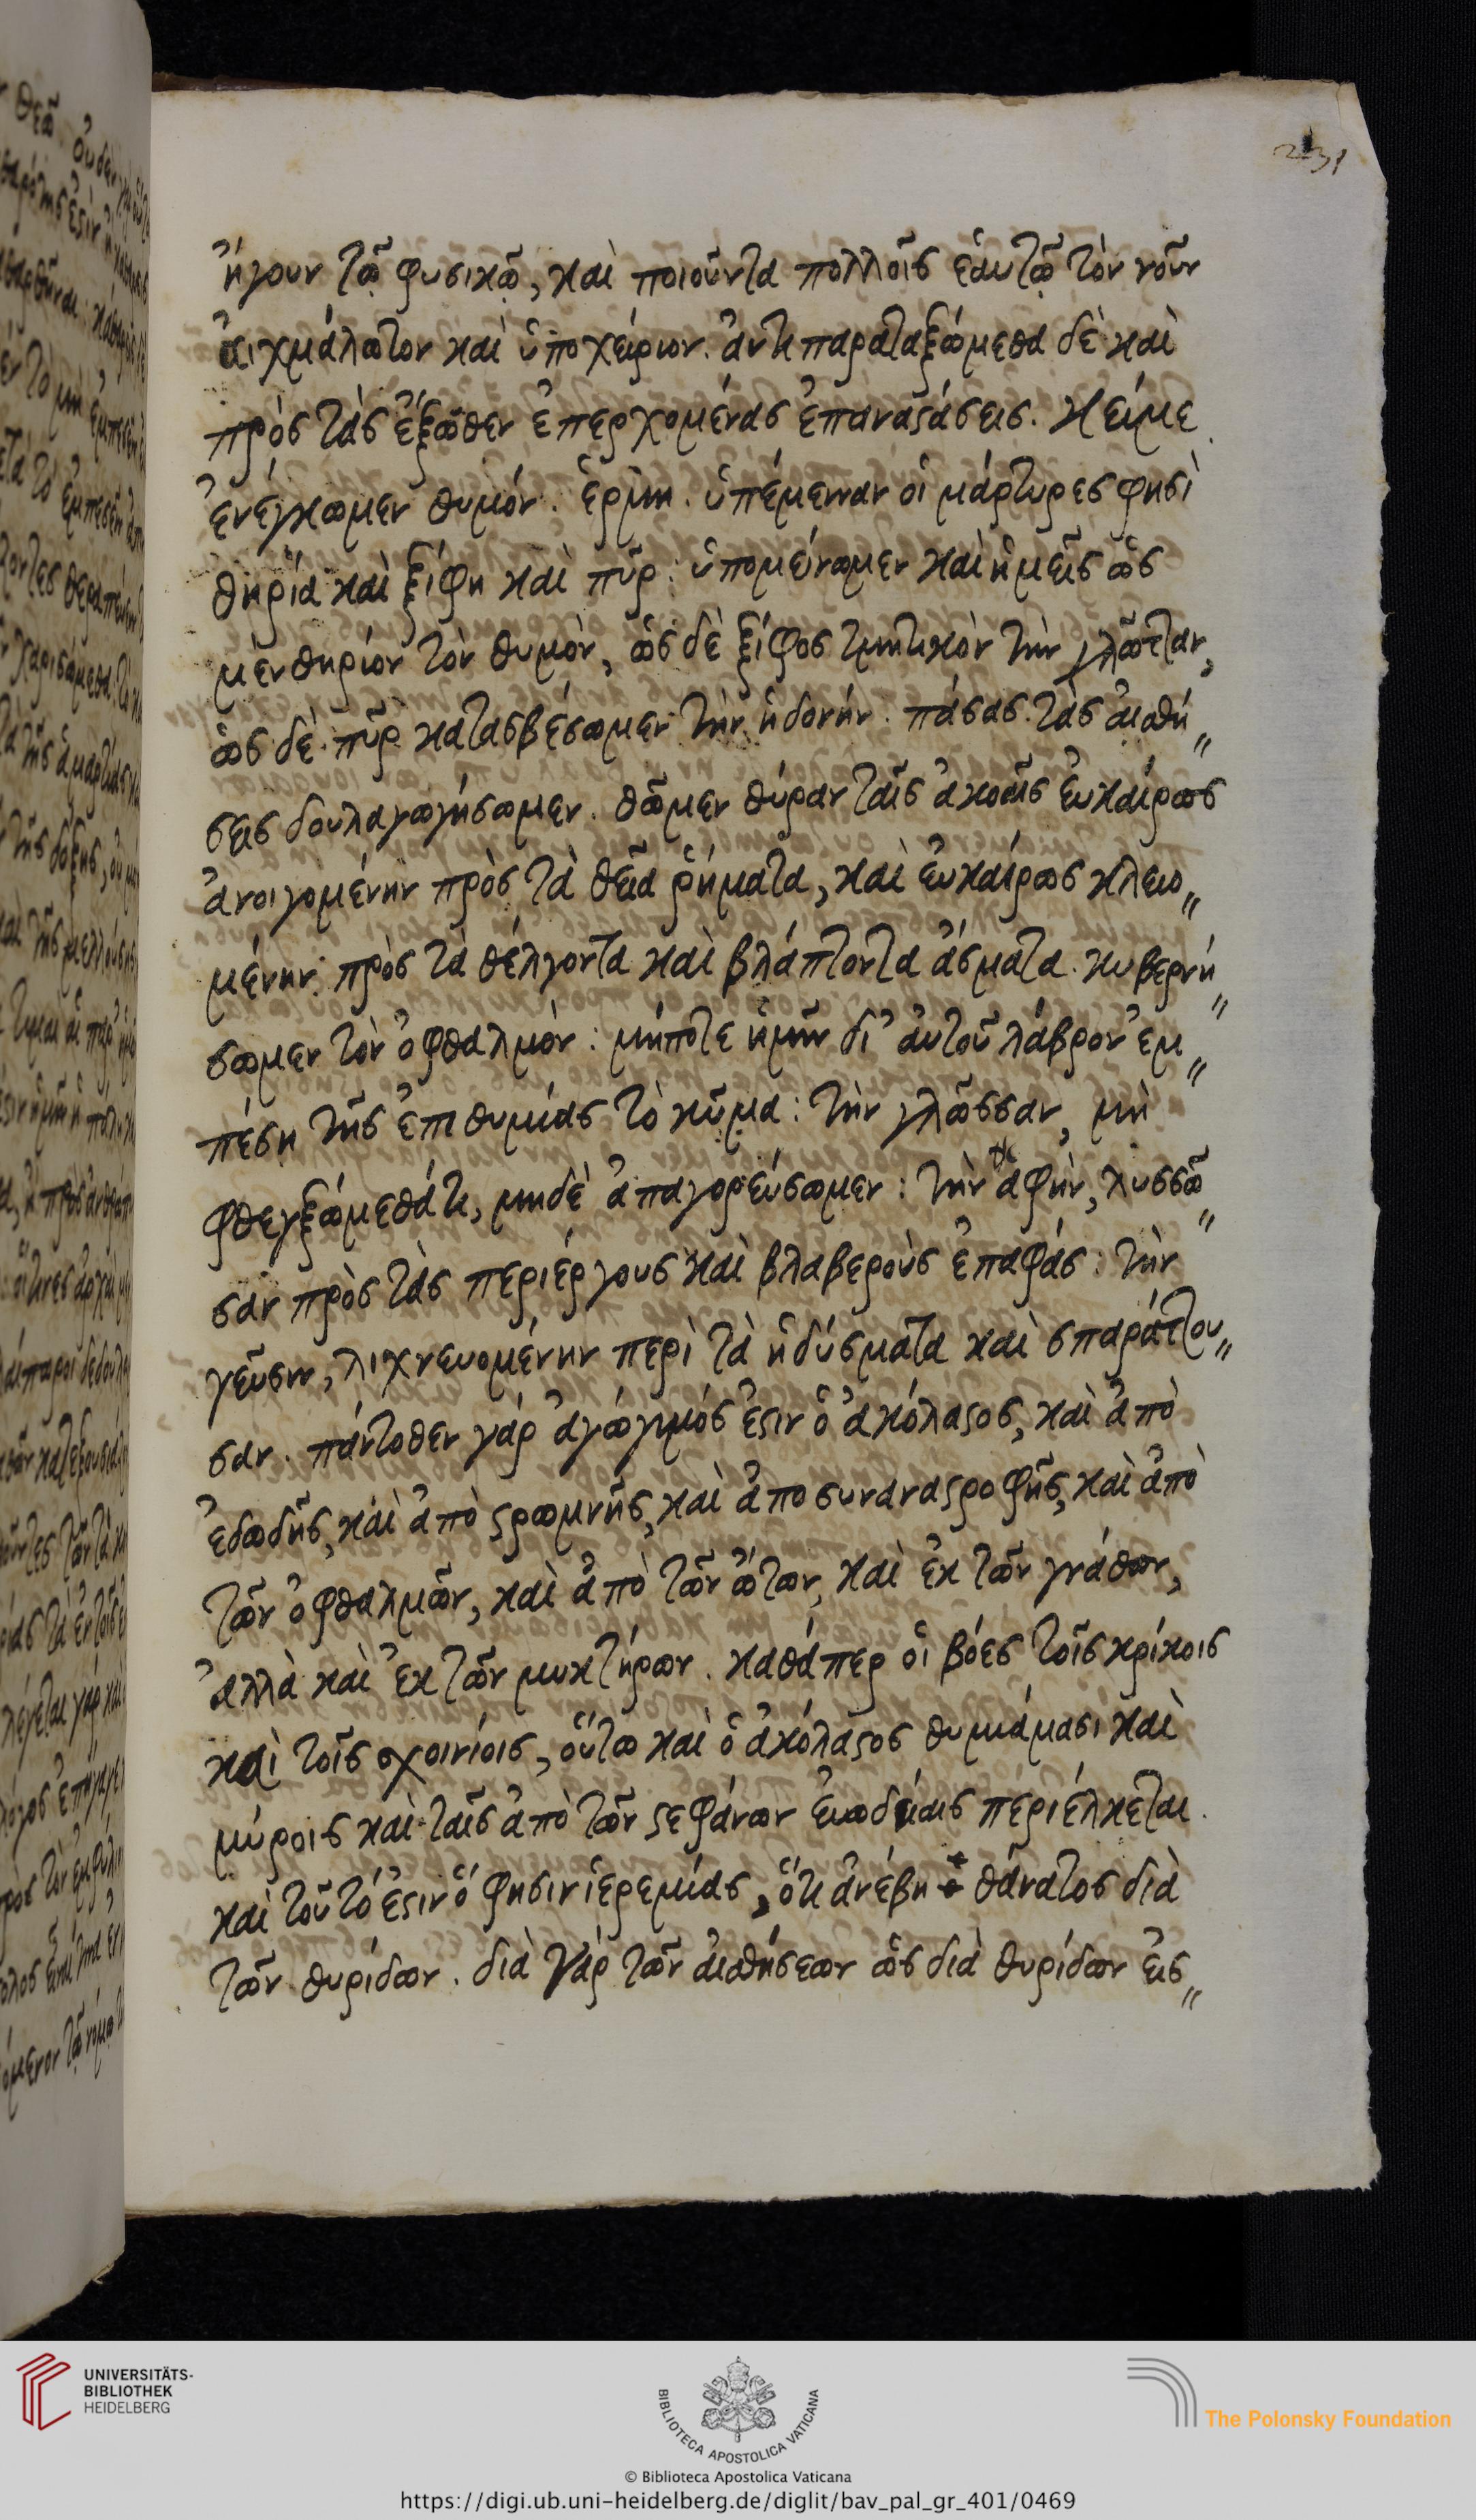 231
ἤγουν τῷ φυσικῷ, καὶ ποιοῦντα πολλοῖς ἑαυτῷ τὸν νοῦν
αἰχμάλωτον καὶ ὑποχείριον. ἀντιπαραταξώμεθα δὲ καὶ
πρὸς τὰς ἔξωθεν ἐπερχομένας ἐπαναστάσεις. κείμε
ἐνέγκωμεν θυμόν. ἑρμη. ὑπέμειναν οἱ μάρτυρες φησὶ
θηρία καὶ ξίφη καὶ πῦρ: ὑπομείνωμεν καὶ ἡμεῖς ὡς
μὲν θηρίον τὸν θυμὸν, ὡς δὲ ξίφος τμητικὸν τὴν γλῶτταν,
ὡς δὲ πῦρ κατασβέσωμεν τὴν ἡδονήν. πάσας τὰς αἰσθή„
σεις δουλαγωγήσωμεν. θῶμεν θύραν ταῖς ἀκοαῖς εὐκαίρως
ἀνοιγομένην πρὸς τὰ θεῖα ῥήματα, καὶ εὐκαίρως κλειο„
μένην πρὸς τὰ θέλγοντα καὶ βλάπτοντα ᾄσματα. κυβερνή„
σωμεν τὸν ὀφθαλμὸν: μήποτε ἡμῖν δι' αὐτοῦ λάβρον ἐμ„
πέση τῆς ἐπιθυμίας τὸ κῦμα: τὴν γλῶσσαν, μὴ
φθεγξώμεθάτι, μηδὲ ἀπαγορεύσωμεν: τὴν ἁφὴν, λυσσῶ„
σαν πρὸς τὰς περιέργους καὶ βλαβεροὺς ἐπαφάς: τὴν
γεῦσιν, λιχνευομένην περὶ τὰ ἡδύσματα καὶ σπαράττου„
σαν. πάντοθεν γάρ ἀγώγιμός ἐστιν ὁ ἀκόλαστος, καὶ ἀπὸ
ἐδωδῆς, καὶ ἀπὸ στρωμνῆς, καὶ ἀπο συναναστροφῆς, καὶ ἀπὸ
τῶν ὀφθαλμῶν, καὶ ἀπὸ τῶν ὤτων, καὶ ἐκ τῶν γνάθων,
ἀλλὰ καὶ ἐκ τῶν μυκτήρων. καθάπερ οἱ βόες τοῖς κρίκοις
καὶ τοῖς σχοινίοις, οὕτω καὶ ὁ ἀκόλαστος θυμιάμασι καὶ
μύροις καὶ ταῖς ἀπὸ τῶν στεφάνων εὐωδίαις περιέλκεται.
καὶ τοῦτό ἐστιν ὅ φησιν ἱερεμίας, ὅτι ἀνέβη ὁ θάνατος διὰ
τῶν θυρίδων. διὰ γὰρ τῶν αἰσθήσεων ὡς διὰ θυρίδων εἰς„
UNIVERSITÄTS-
BIBLIOTHEK
HEIDELBERG
BIBLIOTECA APOSTOLICA VATICANA
The Polonsky Foundation
© Biblioteca Apostolica Vaticana
https://digi.ub.uni-heidelberg.de/diglit/bav_pal_gr_401/0469